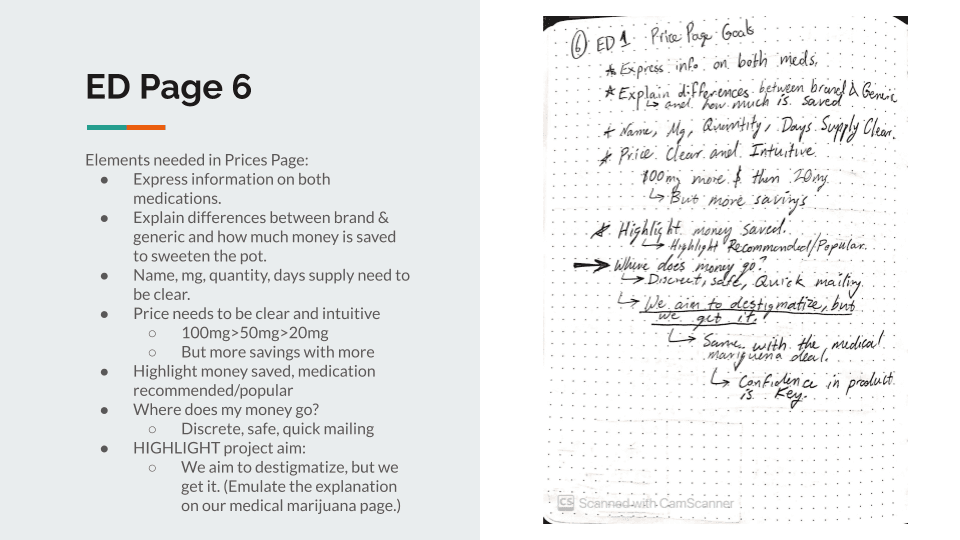 ED Page 6
Elements needed in Prices Page:
● Express information on both
medications.
● Explain differences between brand &
generic and how much money is saved
to sweeten the pot.
● Name, mg, quantity, days supply need to
be clear.
● Price needs to be clear and intuitive
○ 100mg>50mg>20mg
○ But more savings with more
● Highlight money saved, medication
recommended/popular
● Where does my money go?
○ Discrete, safe, quick mailing
● HIGHLIGHT project aim:
○ We aim to destigmatize, but we
get it. (Emulate the explanation
on our medical marijuana page.)
⑥ ED 1 Price Page Goals
* Express info on both meds.
* Explain differences between brand & Generic
↳ and how much is saved
* Name, Mg, Quantity, Days Supply Clear.
* Price Clear and Intuitive
100mg more $ then 20mg
↳ But more savings
* Highlight money saved.
↳ Highlight Recommended/Popular.
→ Where does money go?
↳ Discreet, safe, Quick mailing
↳ We aim to destigmatize, but
we get it.
↳ Same with the medical
marijuena deal.
↳ Confidence in product
is Key.
CS Scanned with CamScanner